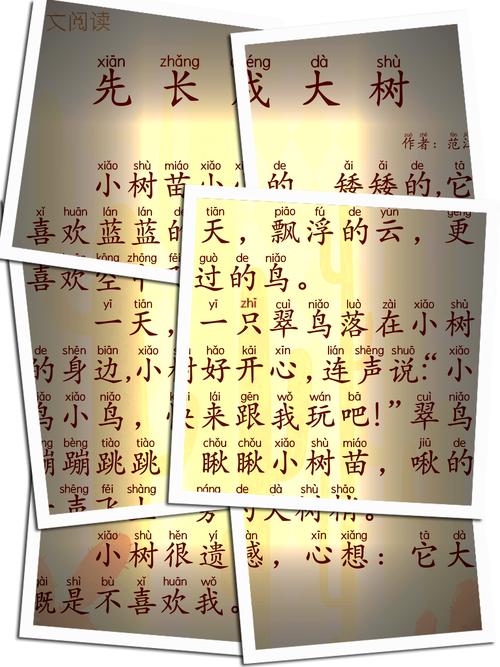 文阅读
xiān zhǎng éng dà shù
先长成大树
作者：范
xiǎo shù miáo xiǎo de ǎi ǎi de tā
小树苗小小的，矮矮的，它
xǐ huān lán lán de tiān piāo fú de yún gèng
喜欢蓝蓝的天，飘浮的云，更
kōng zhōng guò de niǎo
喜欢空中过的鸟。
yī tiān yī zhī cuì niǎo luò zài xiǎo shù
一天，一只翠鸟落在小树
de shēn biān xiǎo hǎo kāi xīn lián shēng shuō xiǎo
的身边，小树好开心，连声说：“小
niǎo xiǎo niǎo lái gēn wǒ wán ba cuì niǎo
鸟小鸟，快来跟我玩吧！”翠鸟
bèng tiào tiào chǒu chǒu xiǎo shù miáo jiū de
蹦蹦跳跳瞅瞅小树苗，啾的
shēng fēi shàng páng de dà shù shāo
声飞上旁的大树梢。
xiǎo shù hěn yí àn xīn xiǎng tā dà
小树很遗憾，心想：它大
gài shì bù xǐ huān wǒ
概是不喜欢我。